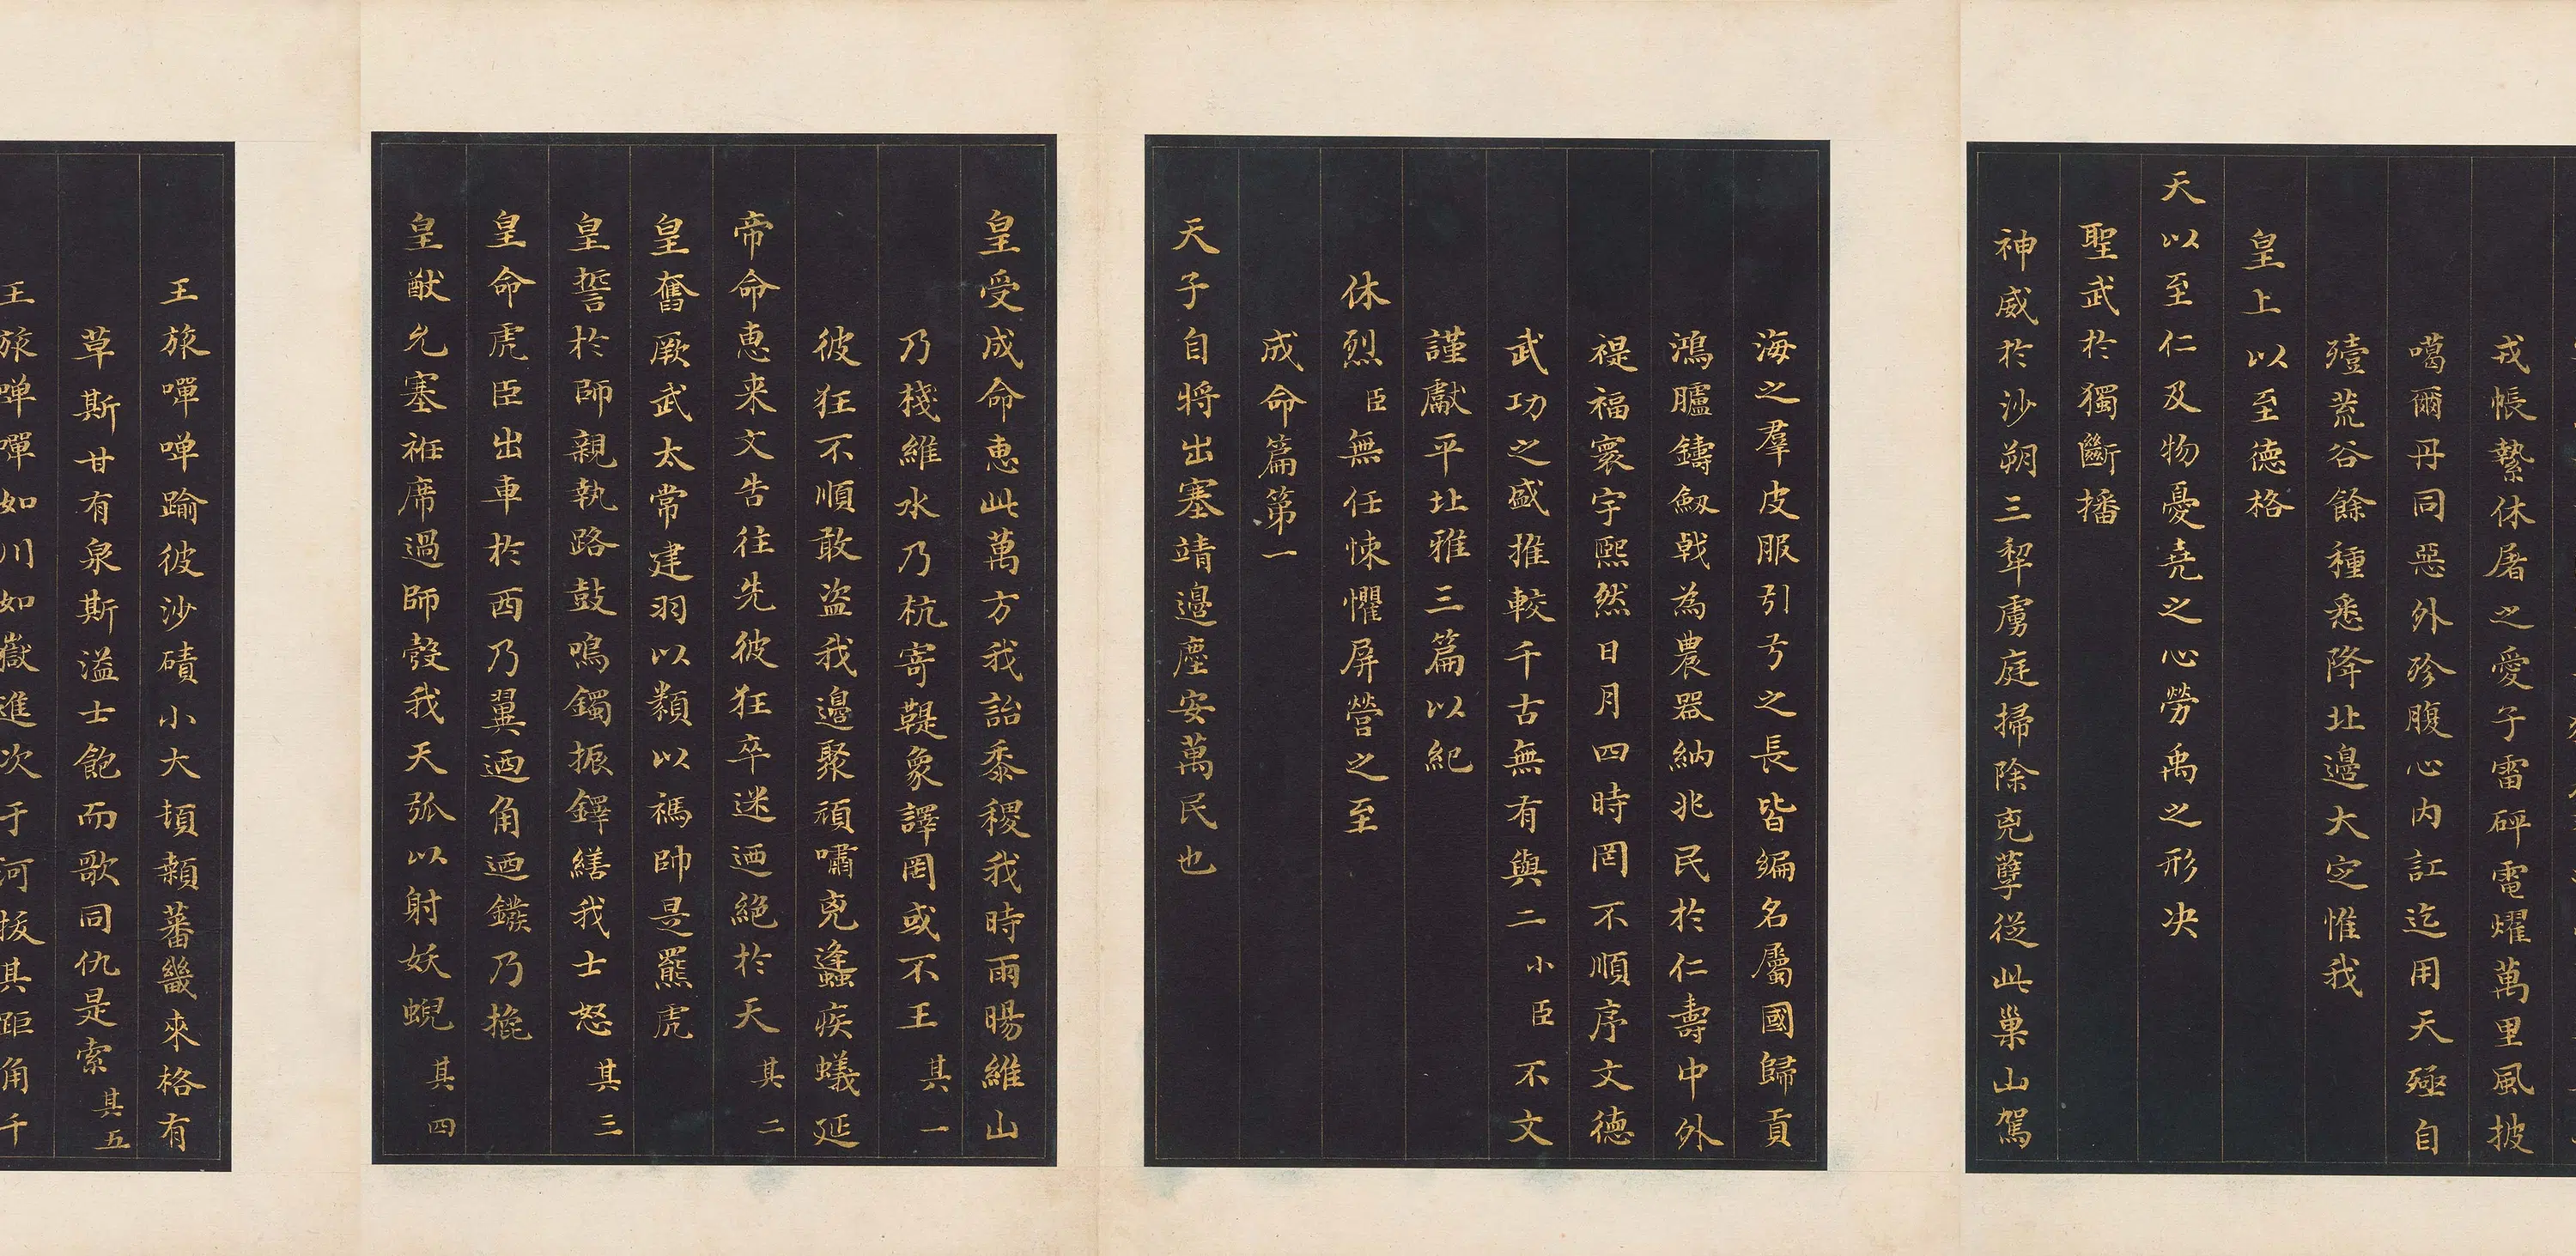 戎帳縶休屠之愛子雷砰電燿萬里風披
噶爾丹同惡外殄腹心内訌迄用天殛自
殪荒谷餘種悉降北邊大定惟我
皇上以至德格
天以至仁及物憂堯之心勞禹之形决
聖武於獨斷播
神威於沙朔三犁虜庭掃除兇孽從此巢山駕
海之羣皮服引弓之長皆編名屬國歸貢
鴻臚鑄劔戟為農器納兆民於仁壽中外
禔福寰宇熙然日月四時罔不順序文德
武功之盛推較千古無有與二小臣不文
謹獻平北雅三篇以紀
休烈臣無任悚懼屏營之至
成命篇第一
天子自將出塞靖邊塵安萬民也
皇受成命惠此萬方我詒黍稷我時雨暘維山
乃棧維水乃杭寄鞮象譯罔或不王其一
彼狂不順敢盜我邊聚頑嘯兇蠭疾蟻延
帝命惠來文告往先彼狂卒迷迺絕於天其二
皇奮厥武太常建羽以類以禡帥是羆虎
皇誓於師親執路鼓鳴鐲振鐸繕我士怒其三
皇命虎臣出車於西乃翼迺角迺鏃乃掎
皇猷允塞袵席過師彀我天弧以射妖蜺其四
王旅嘽嘽踰彼沙磧小大頓顙蕃畿來格有
草斯甘有泉斯溢士飽而歌同仇是索其五
王旅嘽嘽如川如嶽進次于河拔其距角千